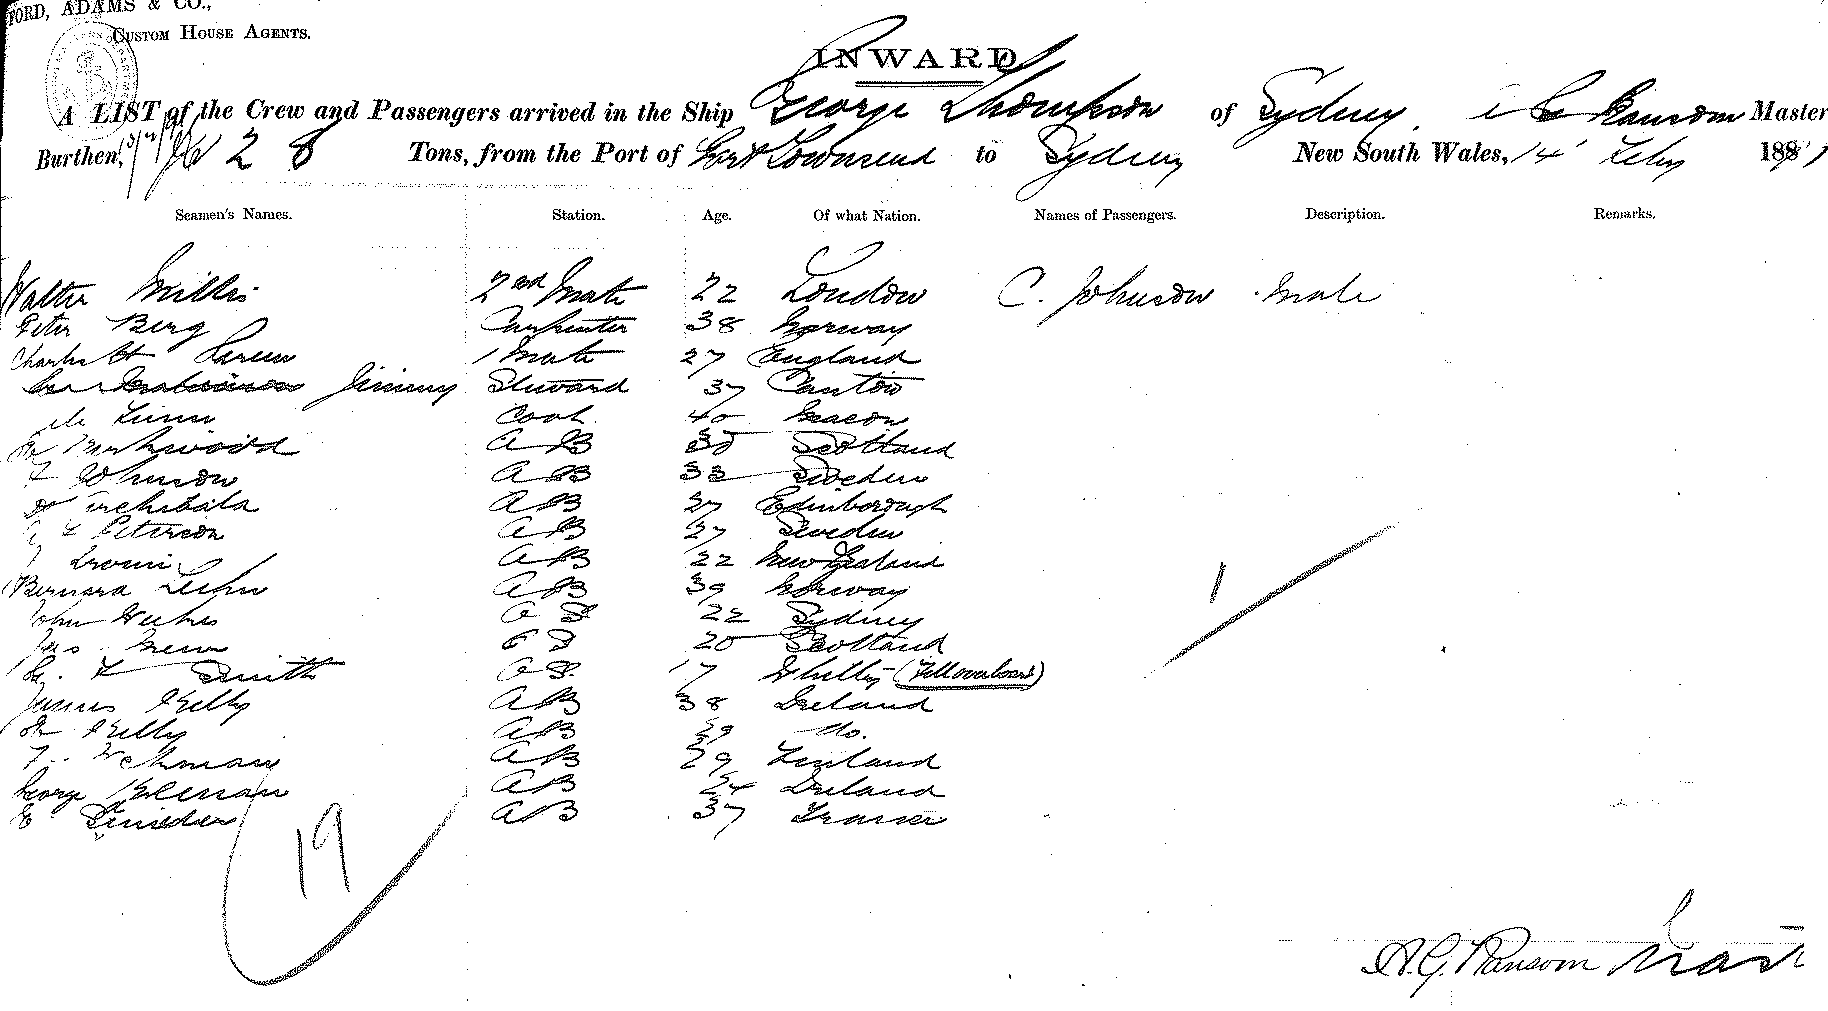 FORD, ADAMS & CO.,
CUSTOM HOUSE AGENTS.
INWARD
A LIST of the Crew and Passengers arrived in the Ship George Thompson of Sydney, Ransom Master
Burthen, Tons, from the Port of Port Townsend to Sydney New South Wales, 14 Feby 189
Seamen's Names. Station. Age. Of what Nation. Names of Passengers. Description. Remarks.
Walter Millis 2nd Mate 22 London C. Johnson Male
Peter Berg Carpenter 38 Norway
Charles 1 Mate 27 England
Jimmy Steward 37 Canton
Cook 40 Macon
Kirkwood AB 30 Scotland
Johnson AB 33 Sweden
Archibald AB 27 Edinborough
Peterson AB 27 Sweden
AB 22 New Zealand
Bernard AB 39 Norway
John OS 22 Sydney
Jas. OS 20 Scotland
Smith OS 17 Whitby (Fell overboard)
James Kelly AB 38 Ireland
Kelly AB 29 do.
AB 29 Finland
George AB 24 Ireland
AB 37 France
1
19
A. G. Ransom Mast